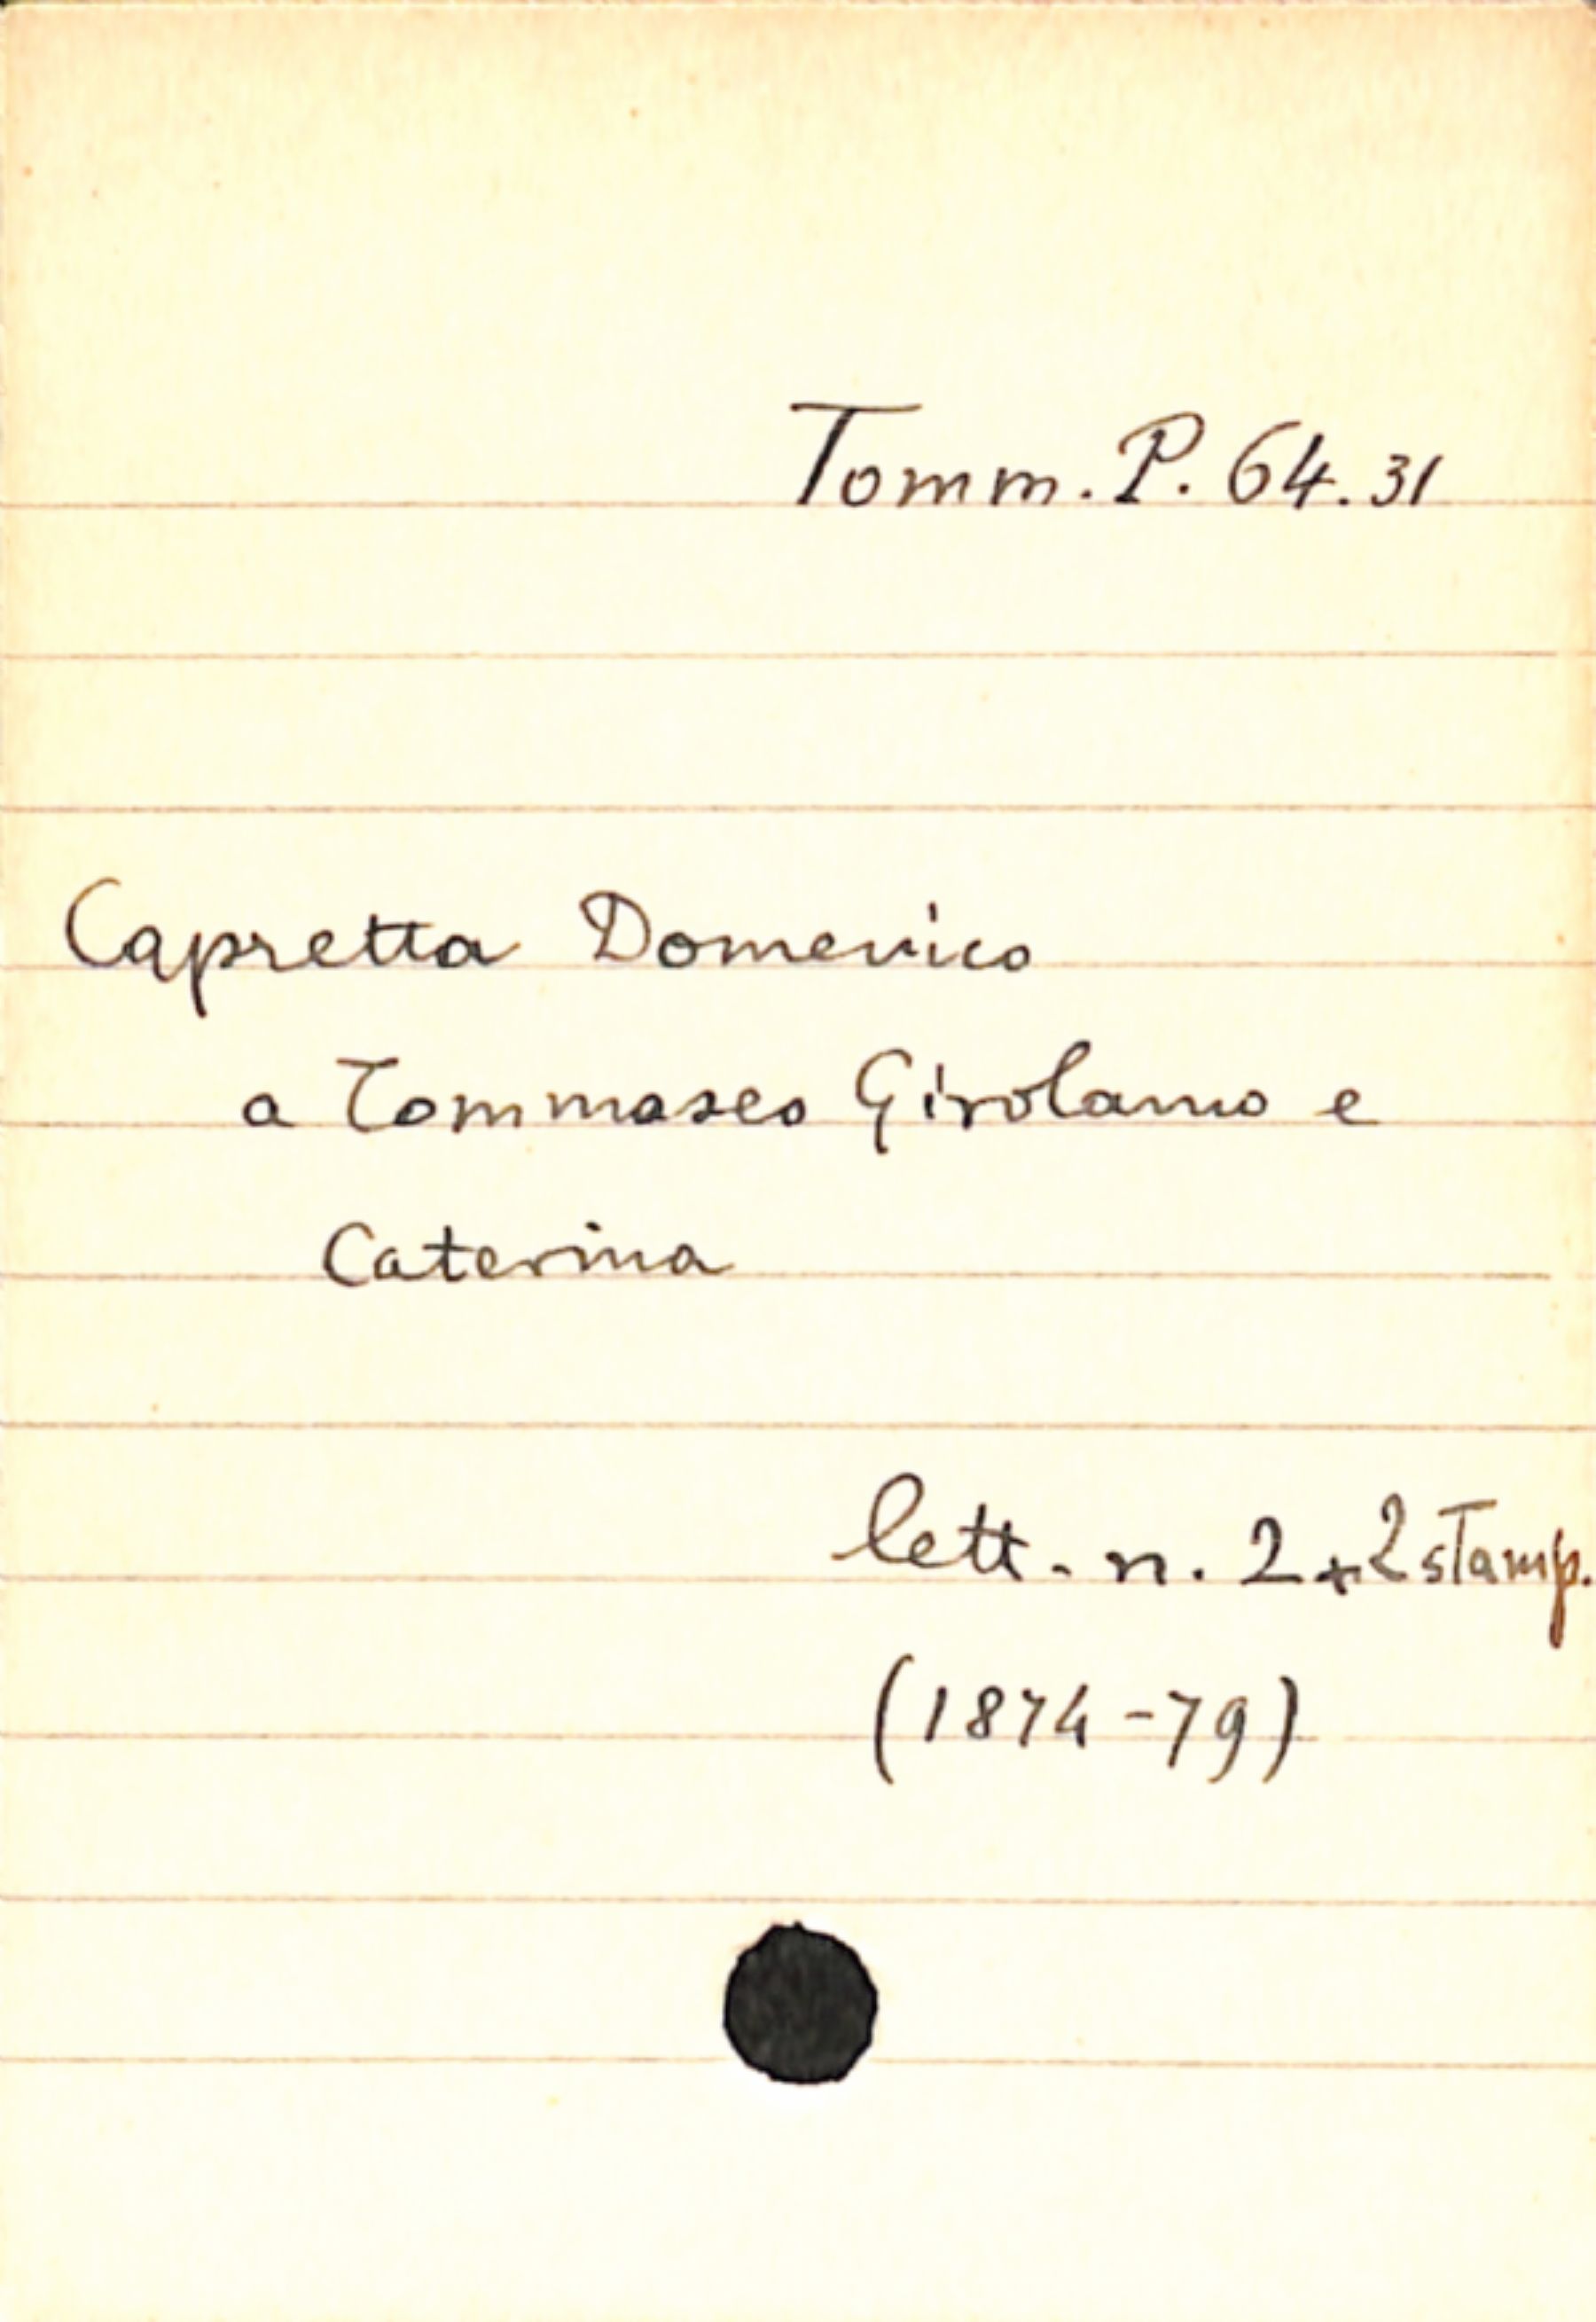 Tomm. P. 64.31
Capretta Domenico
a Tommaseo Girolamo e
Caterina
lett. n. 2 + 2 stamp.
(1874-79)